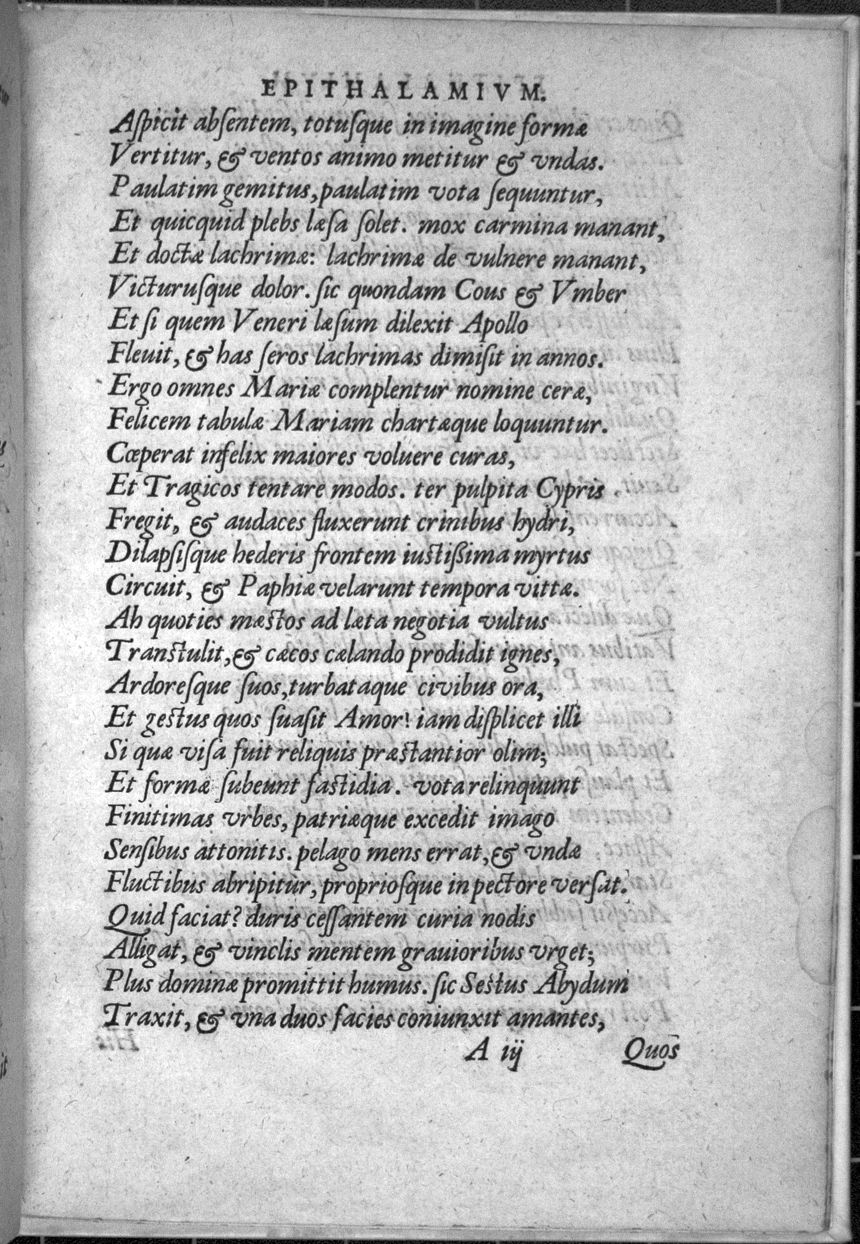 EPITHALAMIVM.
Aſpicit abſentem, totuſque in imagine formæ
Vertitur, & ventos animo metitur & vndas.
Paulatim gemitus, paulatim vota ſequuntur,
Et quicquid plebs læſa ſolet. mox carmina manant,
Et doctæ lachrimæ: lachrimæ de vulnere manant,
Victuruſque dolor. ſic quondam Cous & Vmber
Et ſi quem Veneri læſum dilexit Apollo
Fleuit, & has ſeros lachrimas dimiſit in annos.
Ergo omnes Mariæ complentur nomine ceræ,
Felicem tabulæ Mariam chartæque loquuntur.
Cœperat infelix maiores voluere curas,
Et Tragicos tentare modos. ter pulpita Cypris
Fregit, & audaces fluxerunt crinibus hydri,
Dilapſiſque hederis frontem iuſtißima myrtus
Circuit, & Paphiæ velarunt tempora vittæ.
Ah quoties mæſtos ad læta negotia vultus
Tranſtulit, & cæcos cælando prodidit ignes,
Ardoreſque ſuos, turbataque civibus ora,
Et geſtus quos ſuaſit Amor! iam diſplicet illi
Si quæ viſa fuit reliquis præſtantior olim;
Et formæ ſubeunt faſtidia. vota relinquunt
Finitimas vrbes, patriæque excedit imago
Senſibus attonitis. pelago mens errat, & vndæ
Fluctibus abripitur, proprioſque in pectore verſat.
Quid faciat? duris ceſſantem curia nodis
Alligat, & vinclis mentem grauioribus vrget;
Plus dominæ promittit humus. ſic Seſtus Abydum
Traxit, & vna duos facies coniunxit amantes,
A iij Quos